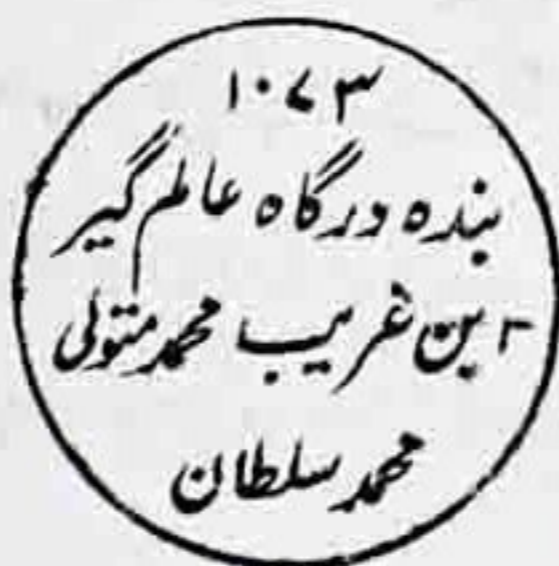 ۱۰۷۳
بنده درگاه عالم گیر
۲ بین غریب محمد متولی
محمد سلطان